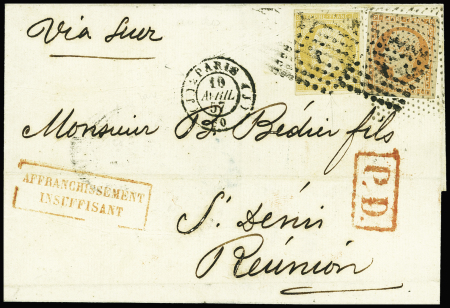 Via Suez
PARIS
10
AVRIL
57
Monsieur B. Bédier fils
AFFRANCHISSEMENT
INSUFFISANT
P.D.
St. Denis
Réunion